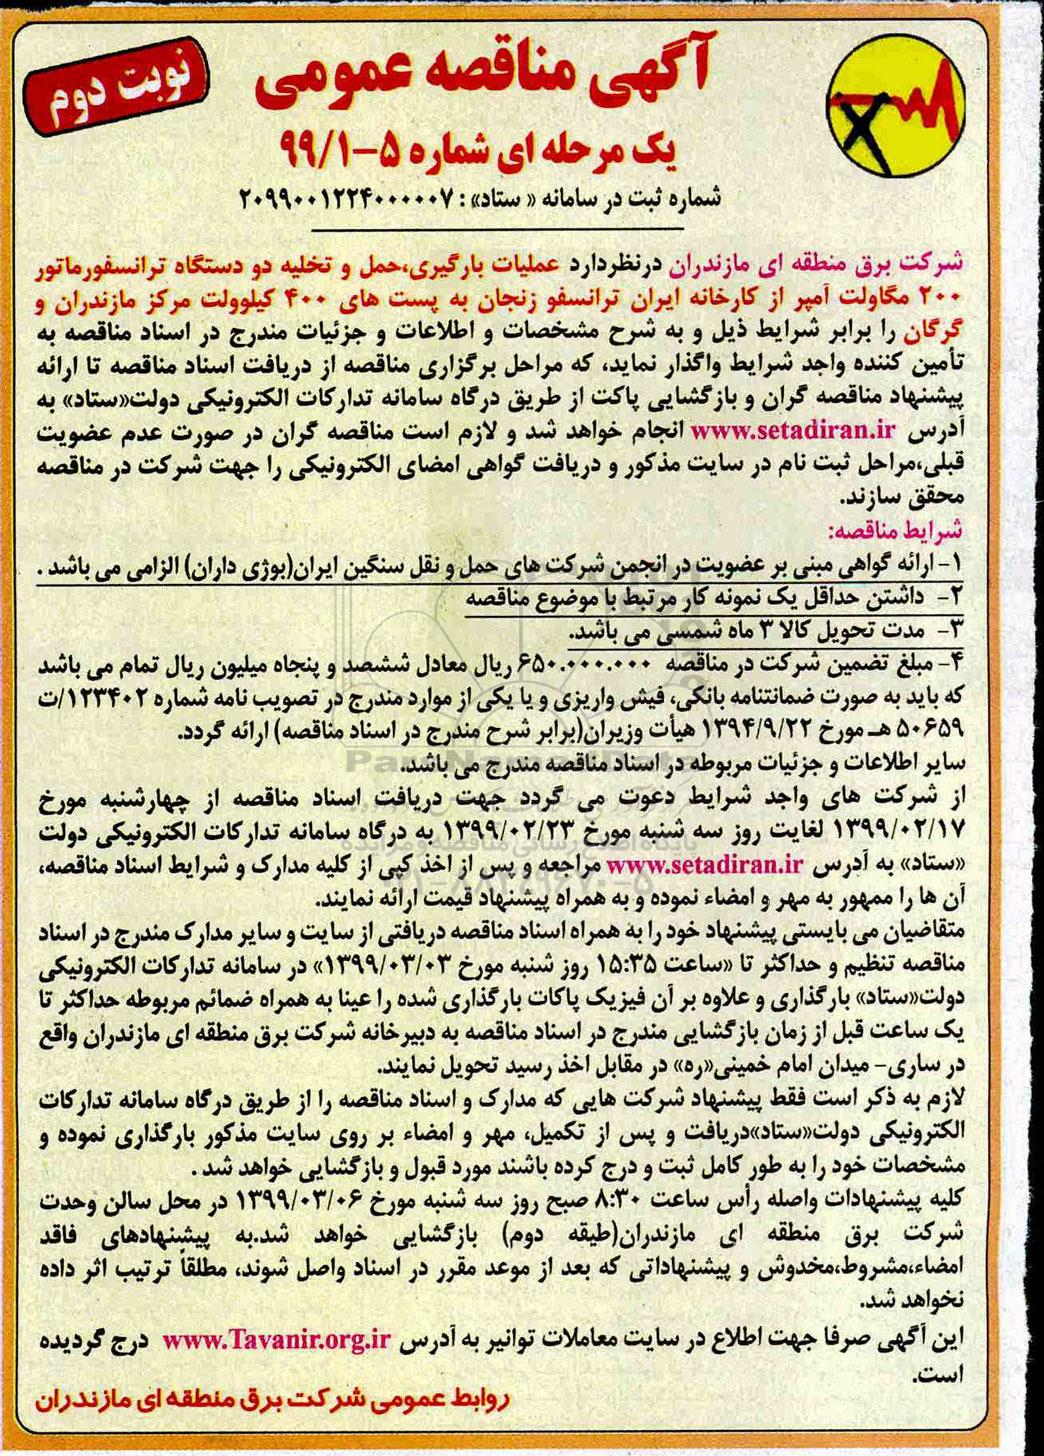 نوبت دوم
آگهی مناقصه عمومی
یک مرحله ای شماره ۵-۹۹/۱
شماره ثبت در سامانه « ستاد» : ۲۰۹۹۰۰۱۲۲۴۰۰۰۰۰۷
شرکت برق منطقه ای مازندران درنظردارد عملیات بارگیری،حمل و تخلیه دو دستگاه ترانسفورماتور
۲۰۰ مگاولت آمپر از کارخانه ایران ترانسفو زنجان به پست های ۴۰۰ کیلوولت مرکز مازندران و
گرگان را برابر شرایط ذیل و به شرح مشخصات و اطلاعات و جزئیات مندرج در اسناد مناقصه به
تأمین کننده واجد شرایط واگذار نماید، که مراحل برگزاری مناقصه از دریافت اسناد مناقصه تا ارائه
پیشنهاد مناقصه گران و بازگشایی پاکت از طریق درگاه سامانه تدارکات الکترونیکی دولت«ستاد» به
آدرس www.setadiran.ir انجام خواهد شد و لازم است مناقصه گران در صورت عدم عضویت
قبلی،مراحل ثبت نام در سایت مذکور و دریافت گواهی امضای الکترونیکی را جهت شرکت در مناقصه
محقق سازند.
شرایط مناقصه:
۱- ارائه گواهی مبنی بر عضویت در انجمن شرکت های حمل و نقل سنگین ایران(بوژی داران) الزامی می باشد .
۲- داشتن حداقل یک نمونه کار مرتبط با موضوع مناقصه
۳- مدت تحویل کالا ۳ ماه شمسی می باشد.
۴- مبلغ تضمین شرکت در مناقصه ۶۵۰.۰۰۰.۰۰۰ ریال معادل ششصد و پنجاه میلیون ریال تمام می باشد
که باید به صورت ضمانتنامه بانکی، فیش واریزی و یا یکی از موارد مندرج در تصویب نامه شماره ۱۲۳۴۰۲/ت
۵۰۶۵۹ هـ مورخ ۱۳۹۴/۹/۲۲ هیأت وزیران(برابر شرح مندرج در اسناد مناقصه) ارائه گردد.
سایر اطلاعات و جزئیات مربوطه در اسناد مناقصه مندرج می باشد.
از شرکت های واجد شرایط دعوت می گردد جهت دریافت اسناد مناقصه از چهارشنبه مورخ
۱۳۹۹/۰۲/۱۷ لغایت روز سه شنبه مورخ ۱۳۹۹/۰۲/۲۳ به درگاه سامانه تدارکات الکترونیکی دولت
«ستاد» به آدرس www.setadiran.ir مراجعه و پس از اخذ کپی از کلیه مدارک و شرایط اسناد مناقصه،
آن ها را ممهور به مهر و امضاء نموده و به همراه پیشنهاد قیمت ارائه نمایند.
متقاضیان می بایستی پیشنهاد خود را به همراه اسناد مناقصه دریافتی از سایت و سایر مدارک مندرج در اسناد
مناقصه تنظیم و حداکثر تا «ساعت ۱۵:۳۵ روز شنبه مورخ ۱۳۹۹/۰۳/۰۳» در سامانه تدارکات الکترونیکی
دولت«ستاد» بارگذاری و علاوه بر آن فیزیک پاکات بارگذاری شده را عینا به همراه ضمائم مربوطه حداکثر تا
یک ساعت قبل از زمان بازگشایی مندرج در اسناد مناقصه به دبیرخانه شرکت برق منطقه ای مازندران واقع
در ساری- میدان امام خمینی«ره» در مقابل اخذ رسید تحویل نمایند.
لازم به ذکر است فقط پیشنهاد شرکت هایی که مدارک و اسناد مناقصه را از طریق درگاه سامانه تدارکات
الکترونیکی دولت«ستاد»دریافت و پس از تکمیل، مهر و امضاء بر روی سایت مذکور بارگذاری نموده و
مشخصات خود را به طور کامل ثبت و درج کرده باشند مورد قبول و بازگشایی خواهد شد .
کلیه پیشنهادات واصله رأس ساعت ۸:۳۰ صبح روز سه شنبه مورخ ۱۳۹۹/۰۳/۰۶ در محل سالن وحدت
شرکت برق منطقه ای مازندران(طبقه دوم) بازگشایی خواهد شد.به پیشنهادهای فاقد
امضاء،مشروط،مخدوش و پیشنهاداتی که بعد از موعد مقرر در اسناد واصل شوند، مطلقاً ترتیب اثر داده
نخواهد شد.
این آگهی صرفا جهت اطلاع در سایت معاملات توانیر به آدرس www.Tavanir.org.ir درج گردیده
است.
روابط عمومی شرکت برق منطقه ای مازندران